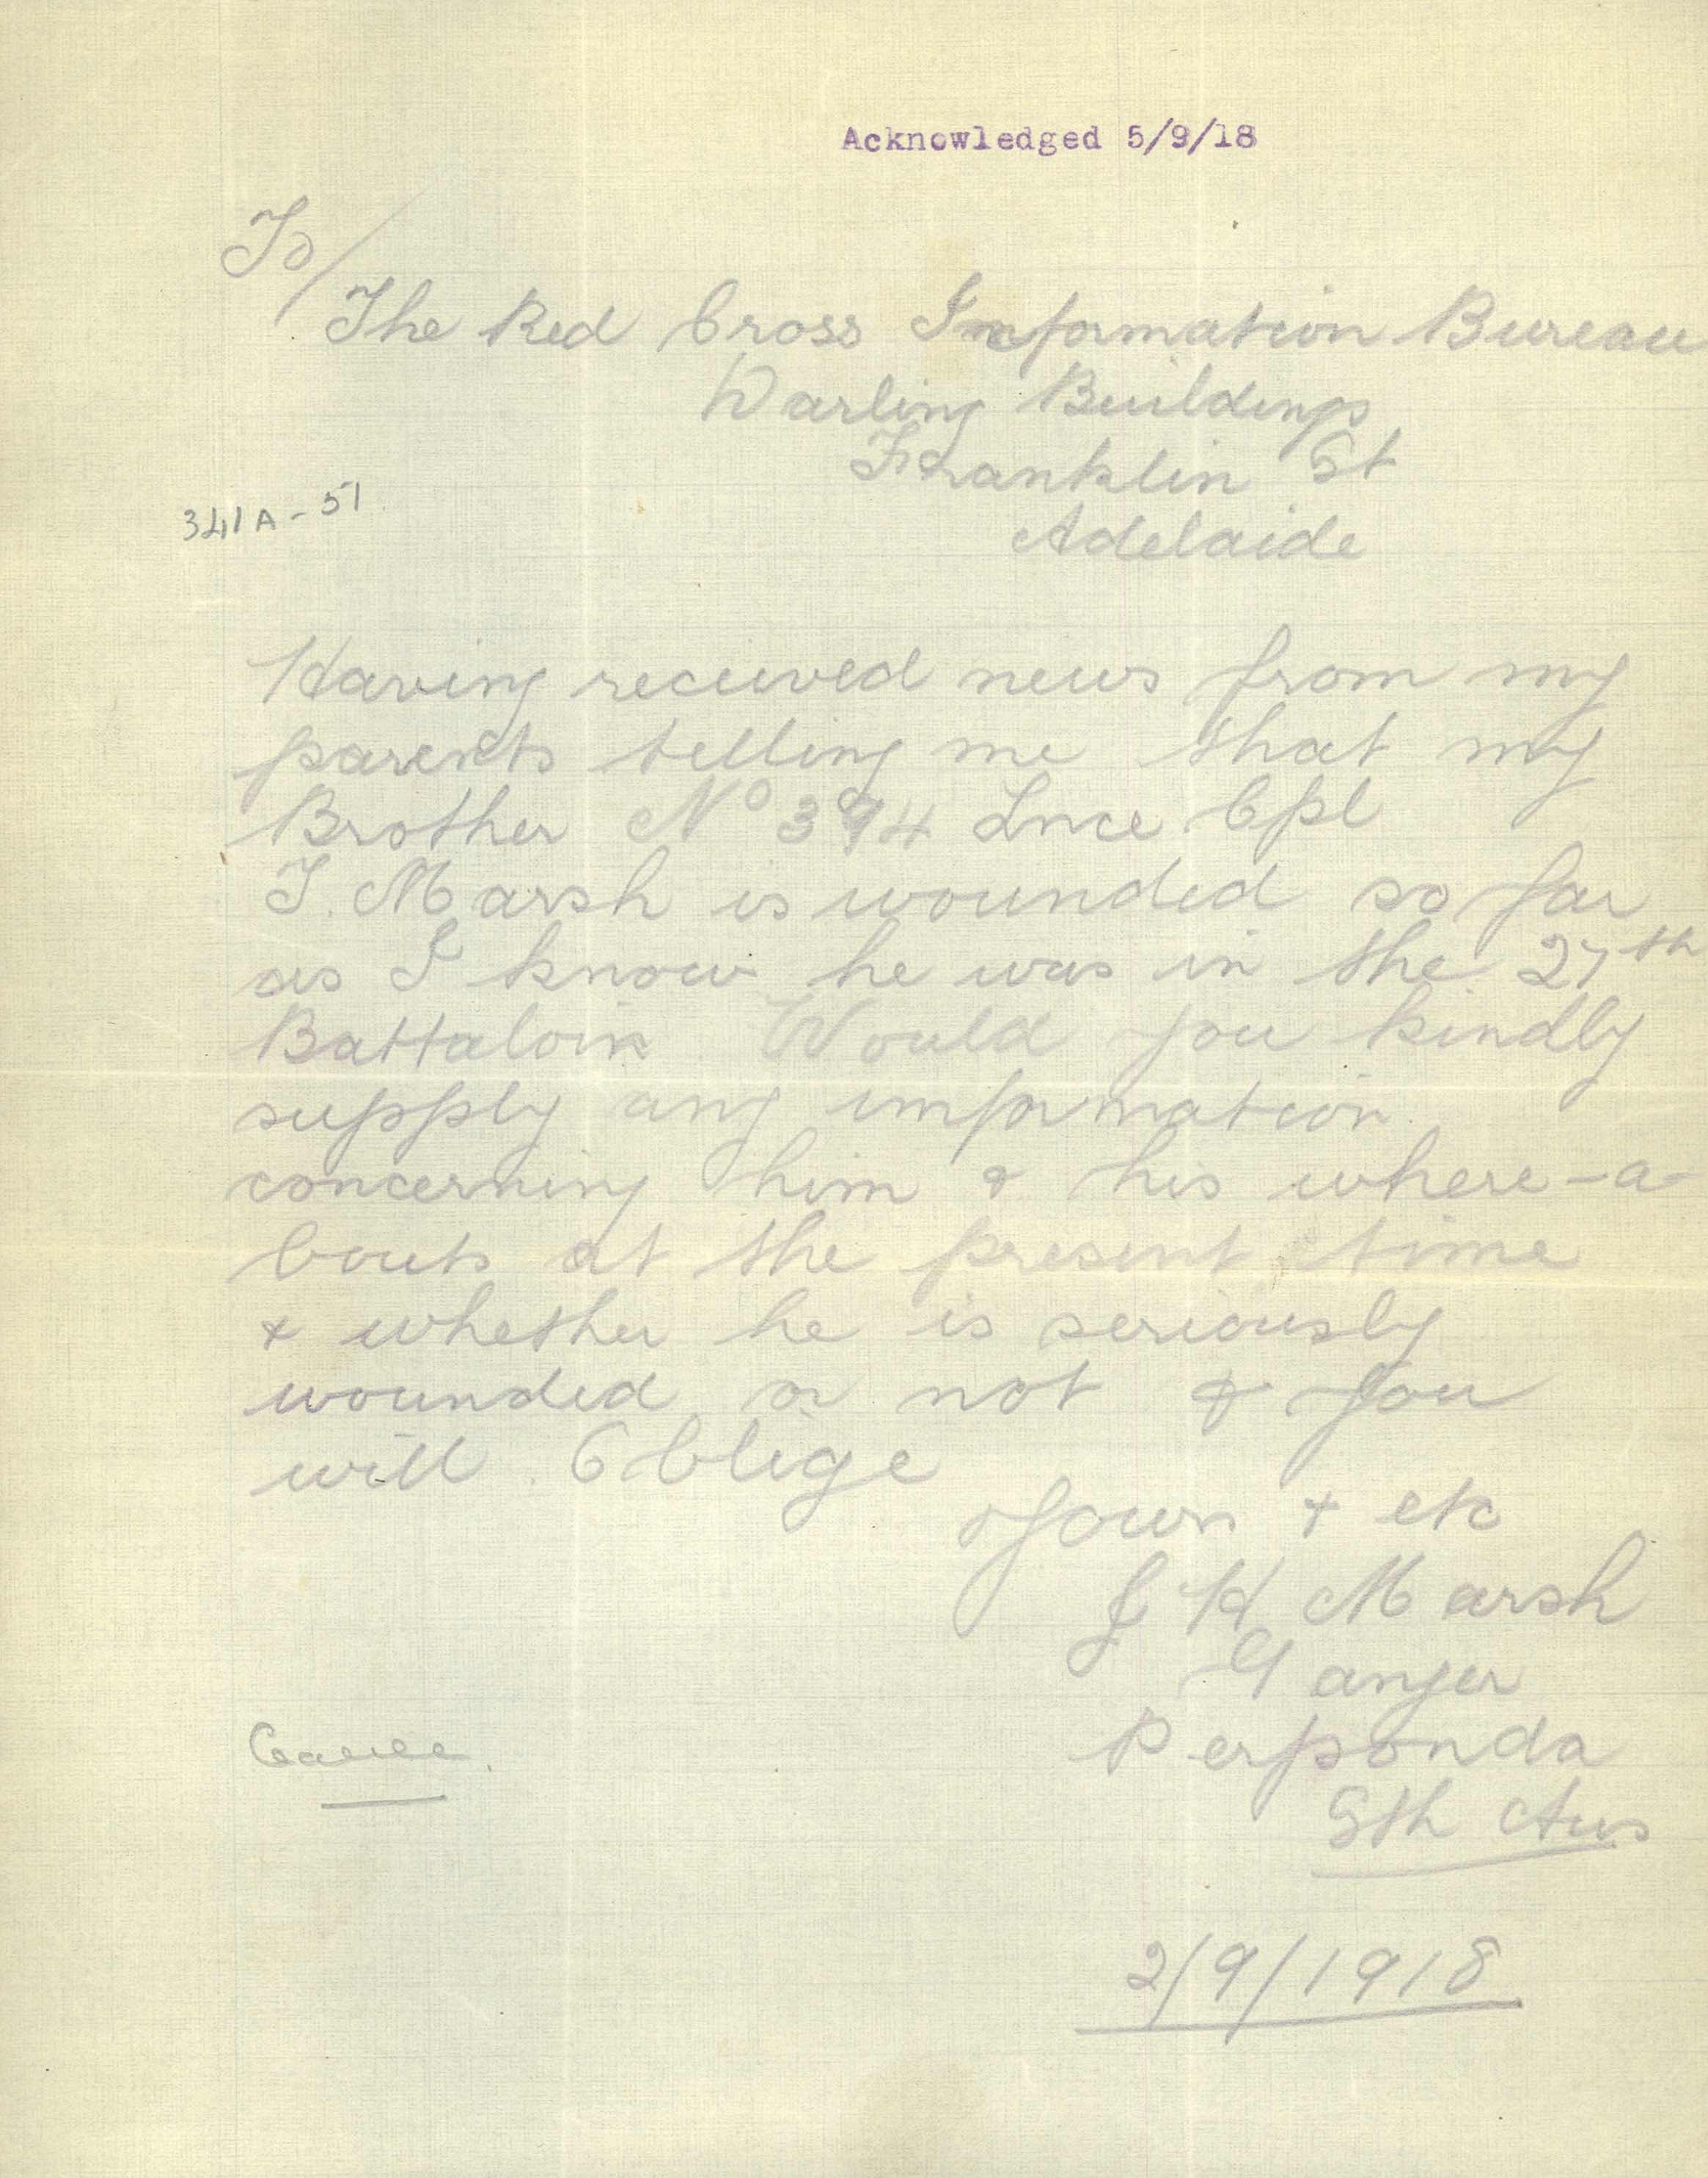 Acknowledged 5/9/18
To/
The Red Cross Information Bureau
Darling Buildings
Franklin St
Adelaide
341A-51.
Having received news from my
parents telling me that my
Brother No 394 Lnce Cpl
T. Marsh is wounded so far
as I know he was in the 27th
Battaloin Would you kindly
supply any imformation
concerning him & his where-a-
bouts at the present time
& whether he is seriously
wounded or not & you
will Oblige
Yours & etc
J H Marsh
Ganger
Perponda
Sth Aus
2/9/1918